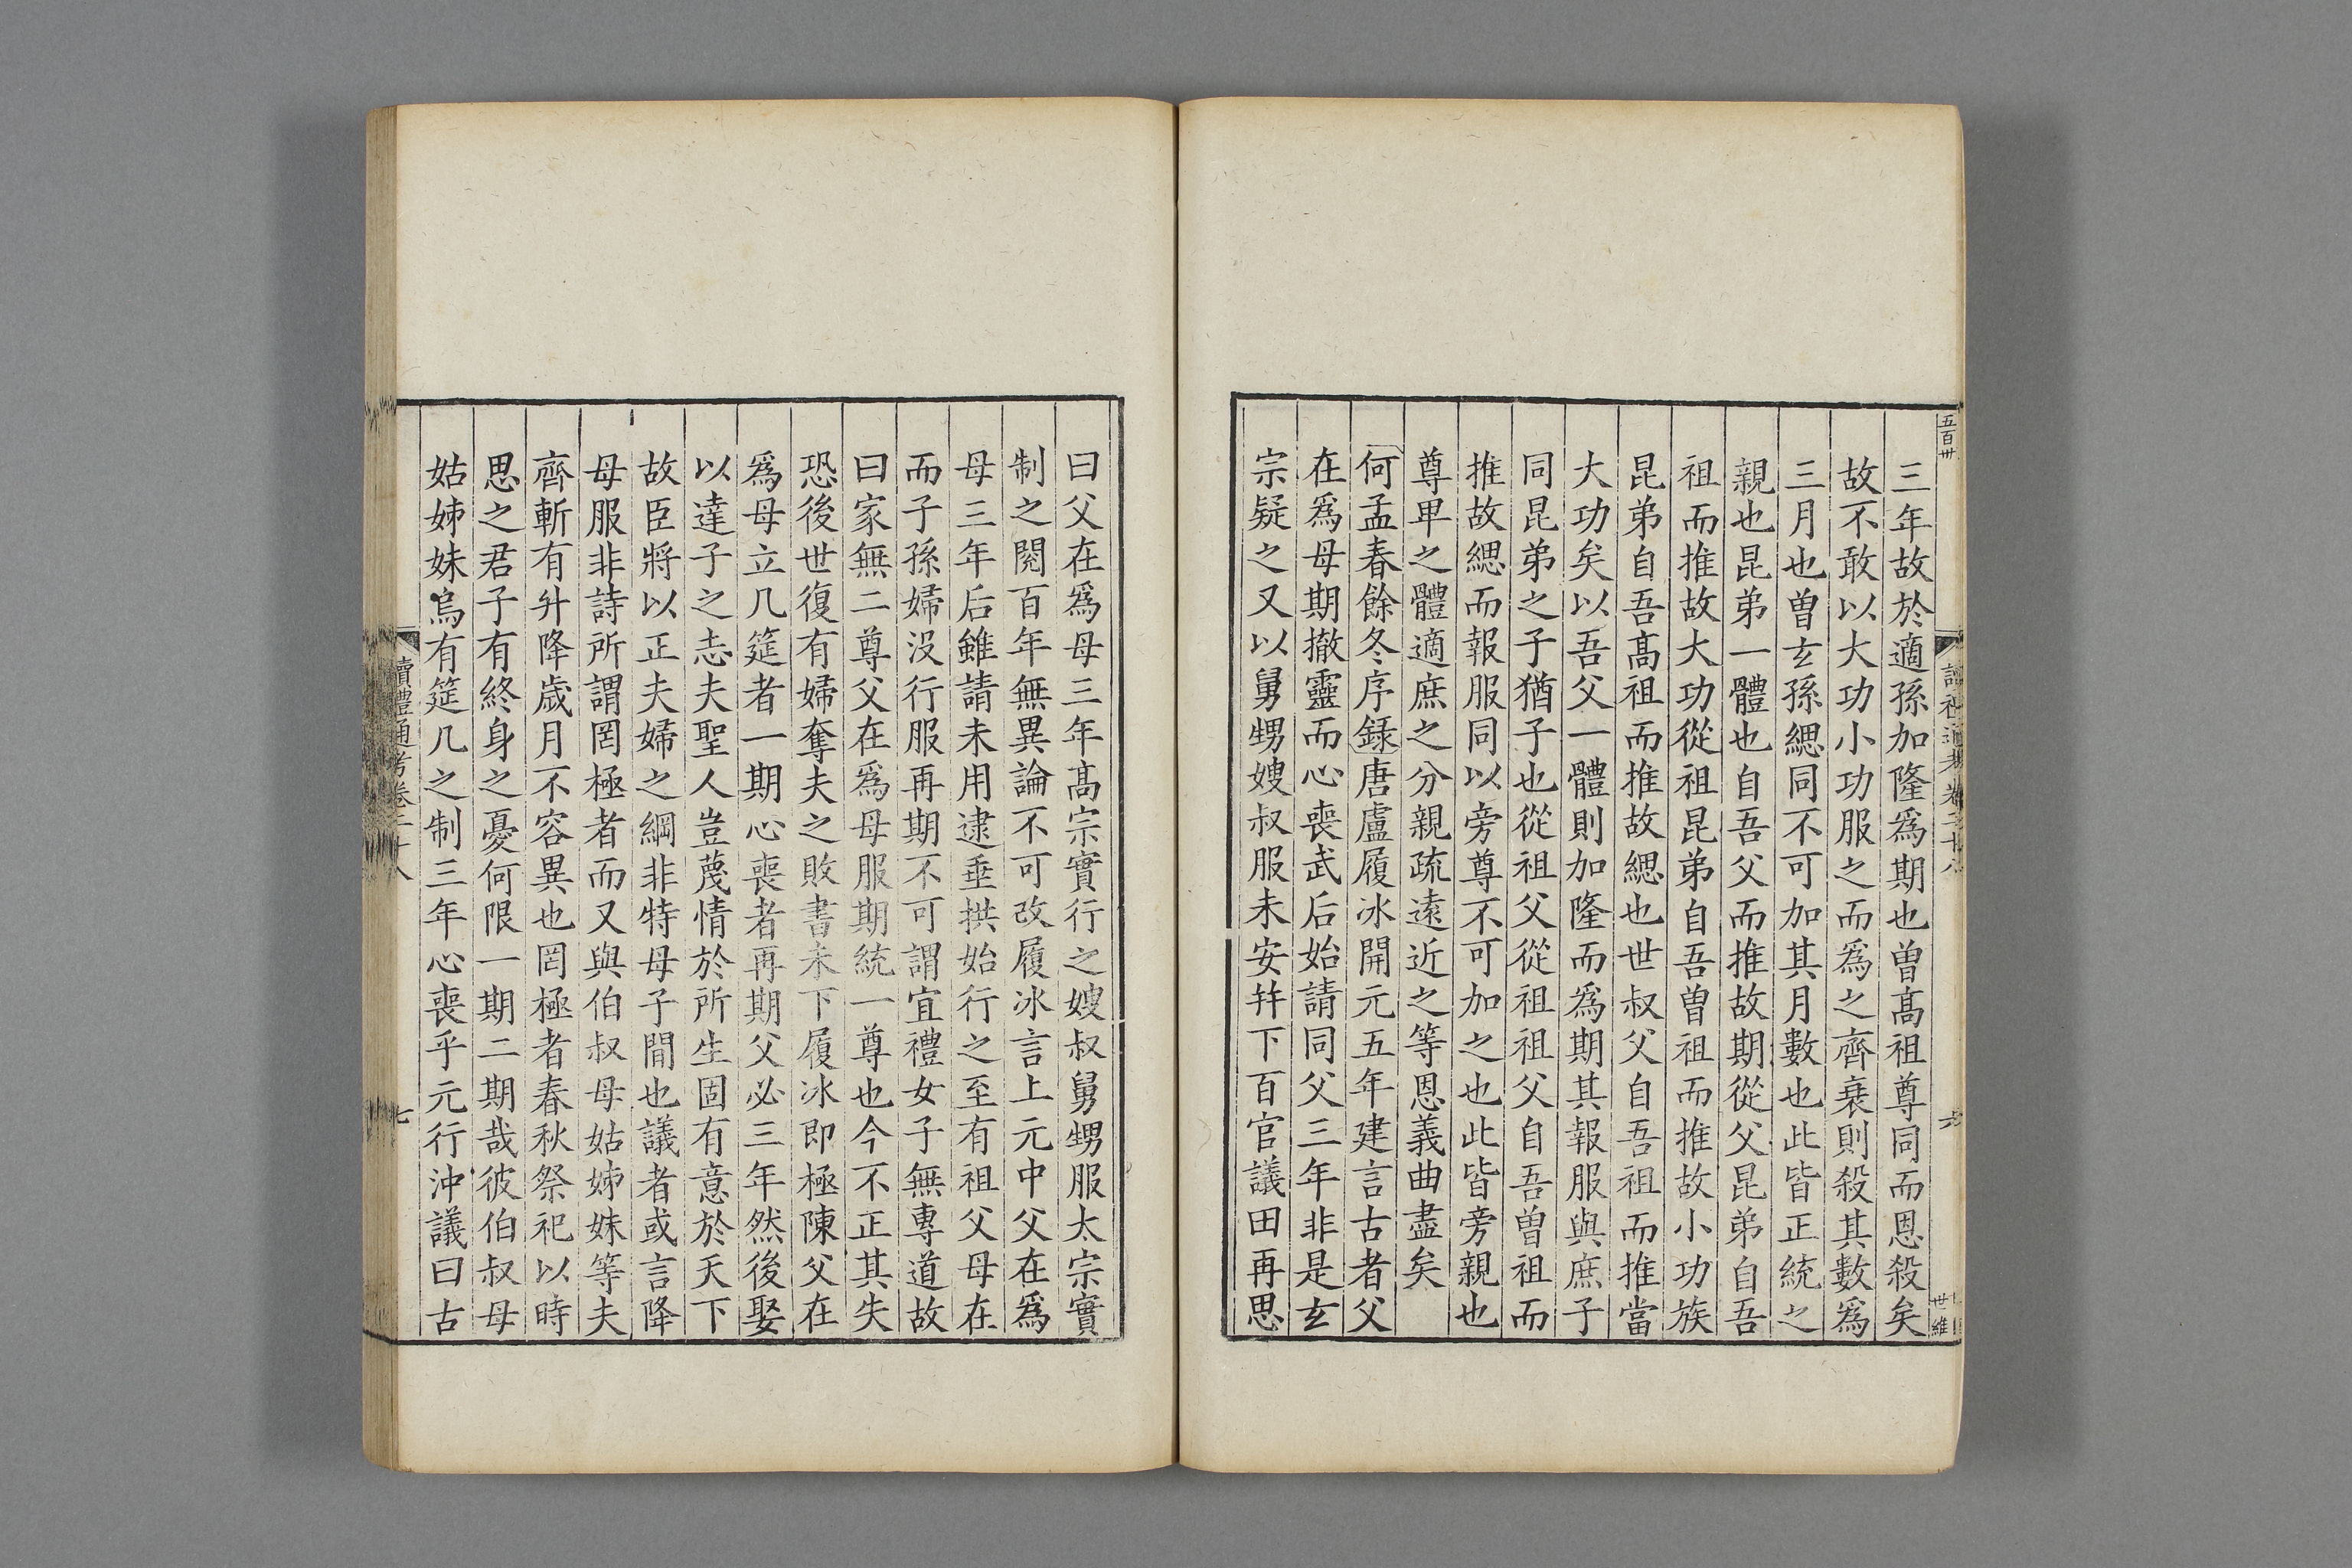 五百卅
讀禮通考卷二十八
六
世維
三年故於適孫加隆爲期也曾髙祖尊同而恩殺矣
故不敢以大功小功服之而爲之齊衰則殺其數爲
三月也曾玄孫緦同不可加其月數也此皆正統之
親也昆弟一體也自吾父而推故期從父昆弟自吾
祖而推故大功從祖昆弟自吾曾祖而推故小功族
昆弟自吾髙祖而推故緦也世叔父自吾祖而推當
大功矣以吾父一體則加隆而爲期其報服與庶子
同昆弟之子猶子也從祖父從祖祖父自吾曾祖而
推故緦而報服同以旁尊不可加之也此皆旁親也
尊卑之體適庶之分親疏逺近之等恩義曲盡矣
何孟春餘冬序録唐盧履冰開元五年建言古者父
在爲母期撤靈而心喪武后始請同父三年非是玄
宗疑之又以舅甥嫂叔服未安幷下百官議田再思
曰父在爲母三年髙宗實行之嫂叔舅甥服太宗實
制之閱百年無異論不可改履冰言上元中父在爲
母三年后雖請未用逮垂拱始行之至有祖父母在
而子孫婦没行服再期不可謂宜禮女子無專道故
曰家無二尊父在爲母服期統一尊也今不正其失
恐後世復有婦奪夫之敗書未下履冰即極陳父在
爲母立几筵者一期心喪者再期父必三年然後娶
以達子之志夫聖人豈蔑情於所生固有意於天下
故臣將以正夫婦之綱非特母子閒也議者或言降
母服非詩所謂罔極者而又與伯叔母姑姊妹等夫
齊斬有升降歲月不容異也罔極者春秋祭祀以時
思之君子有終身之憂何限一期二期哉彼伯叔母
姑姊妹烏有筵几之制三年心喪乎元行沖議曰古
讀禮通考卷二十八
七